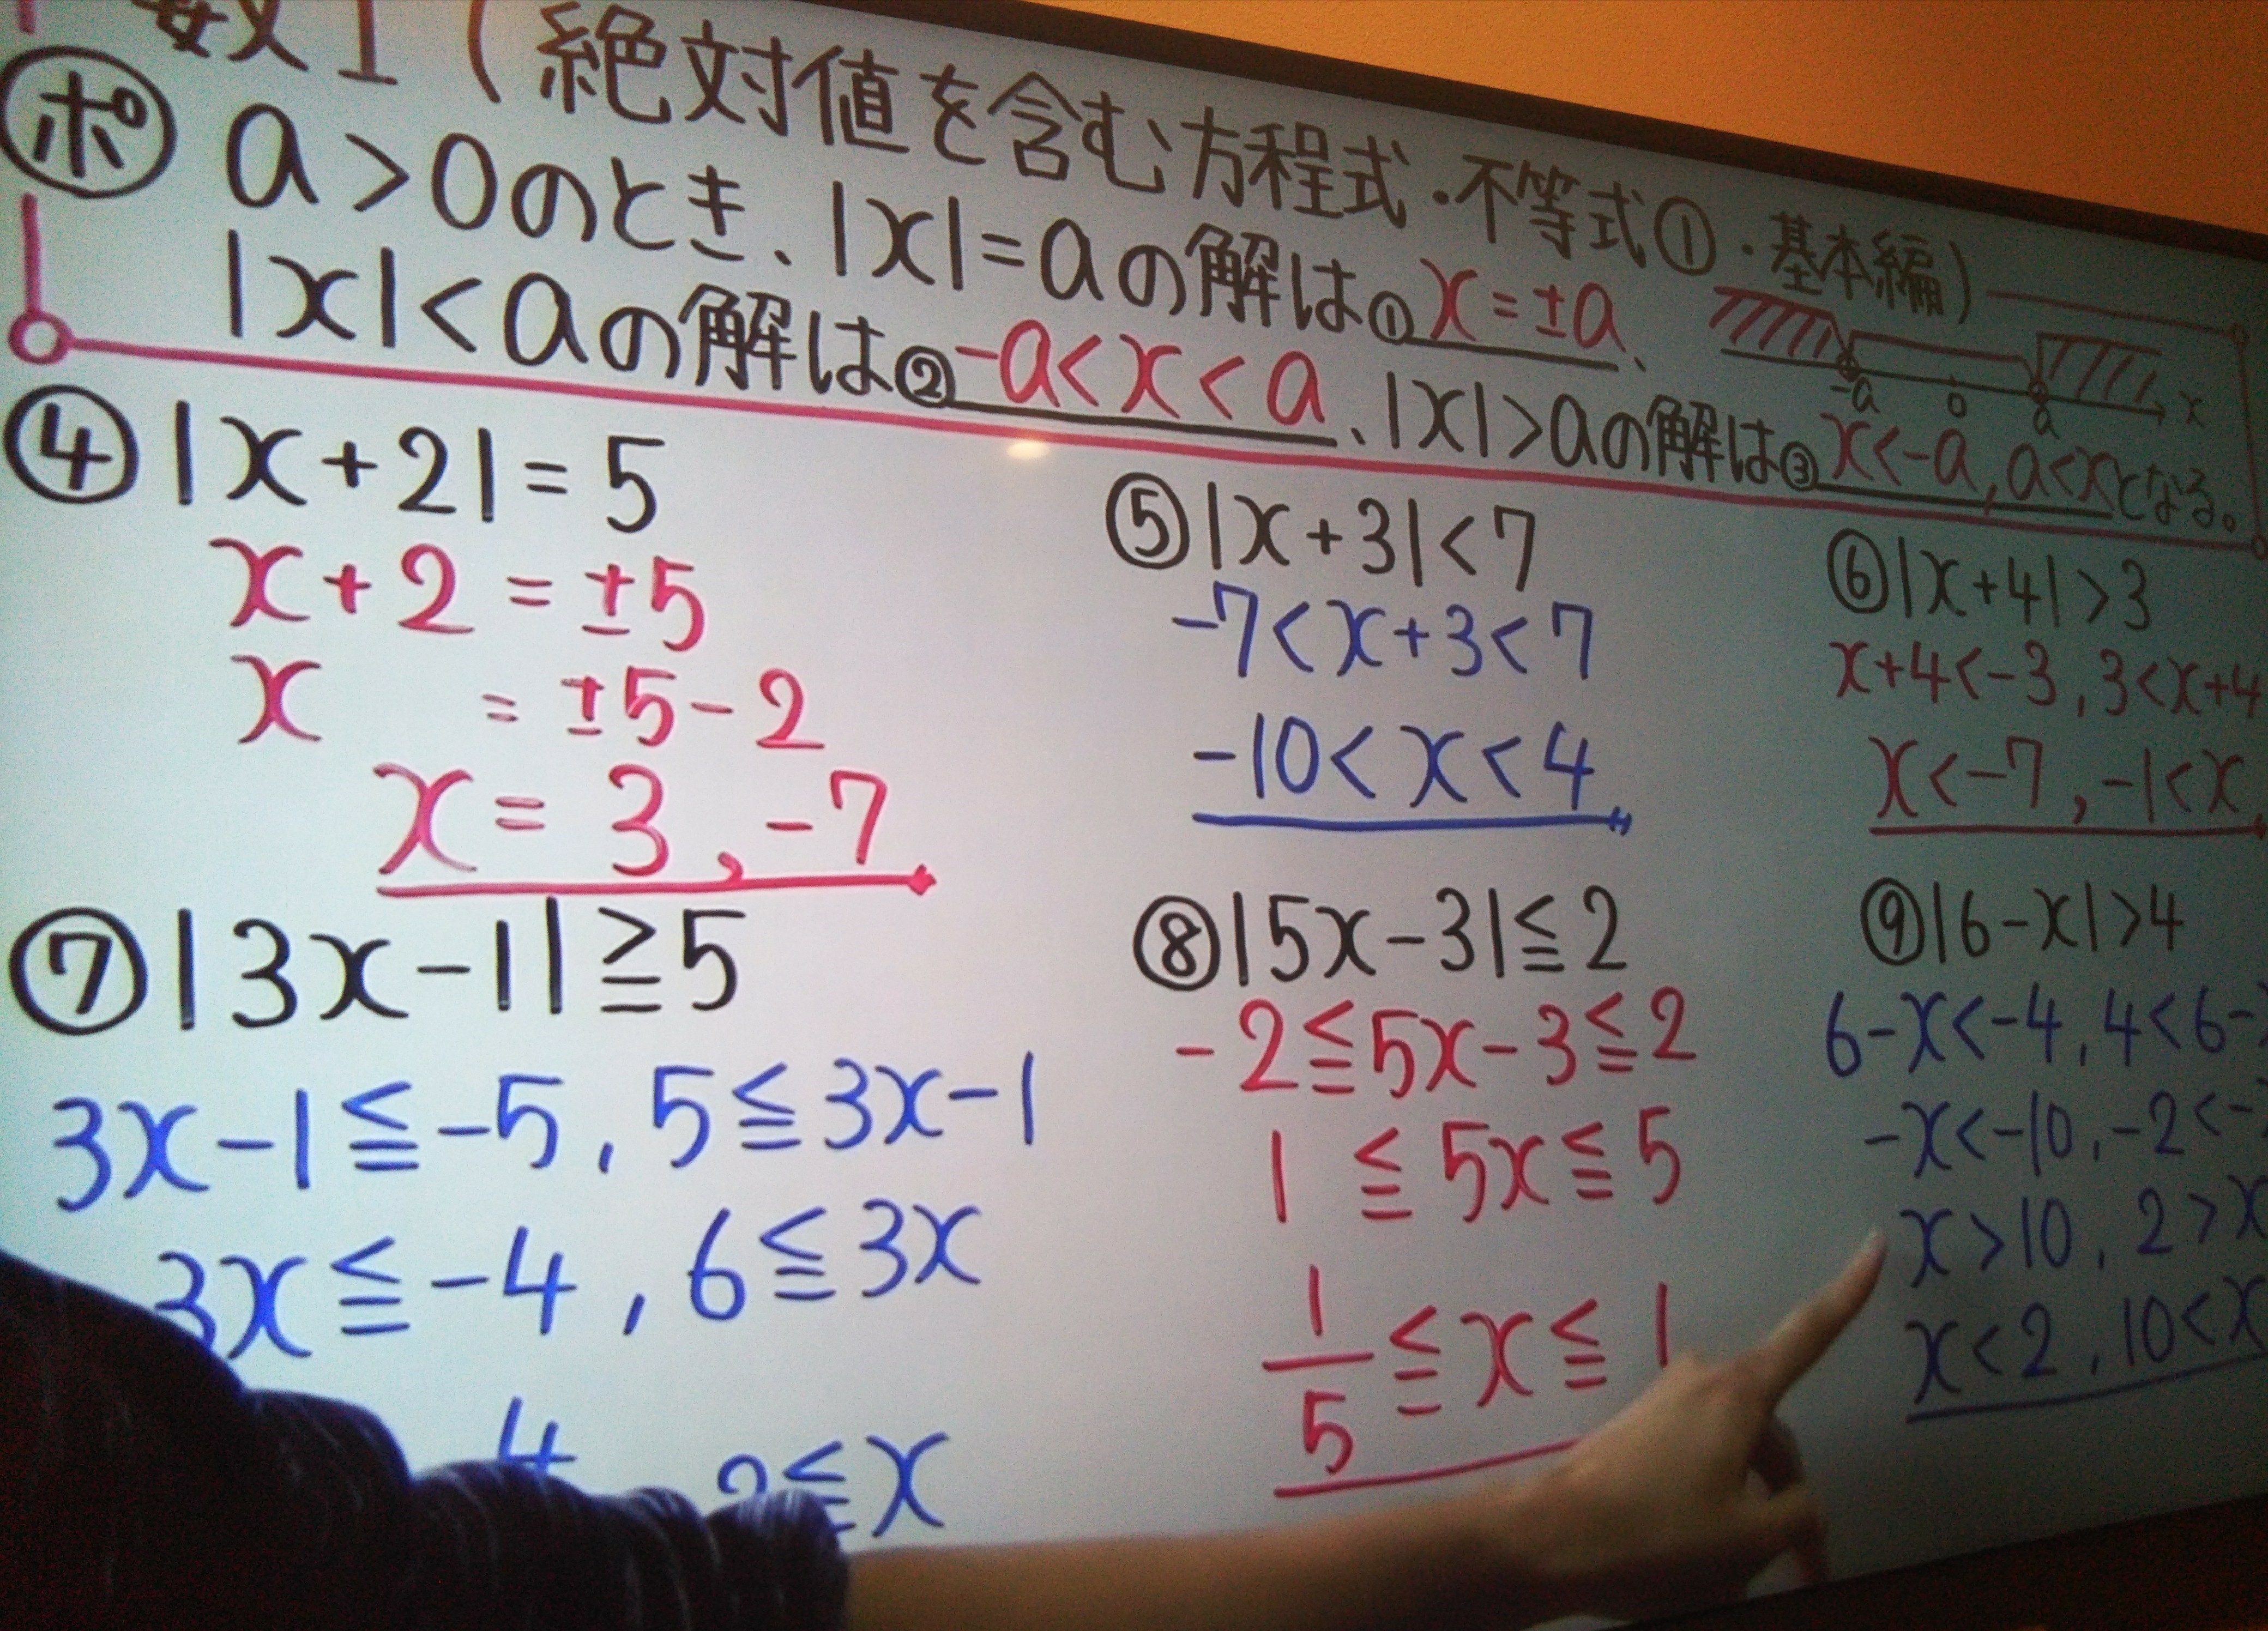 数I(絶対値を含む方程式・不等式①・基本編)
ポ a>0のとき、|x|=aの解は① x=±a、
|x|<aの解は② -a<x<a、|x|>aの解は③ x<-a, a<xとなる。
-a 0 a x
④ |x+2|=5
x+2=±5
x =±5-2
x=3,-7
⑤ |x+3|<7
-7<x+3<7
-10<x<4
⑥ |x+4|>3
x+4<-3, 3<x+4
x<-7, -1<x
⑦ |3x-1|≧5
3x-1≦-5, 5≦3x-1
3x≦-4, 6≦3x
4 2≦x
⑧ |5x-3|≦2
-2≦5x-3≦2
1≦5x≦5
1/5≦x≦1
⑨ |6-x|>4
6-x<-4, 4<6-x
-x<-10, -2<-
x>10, 2>x
x<2, 10<x